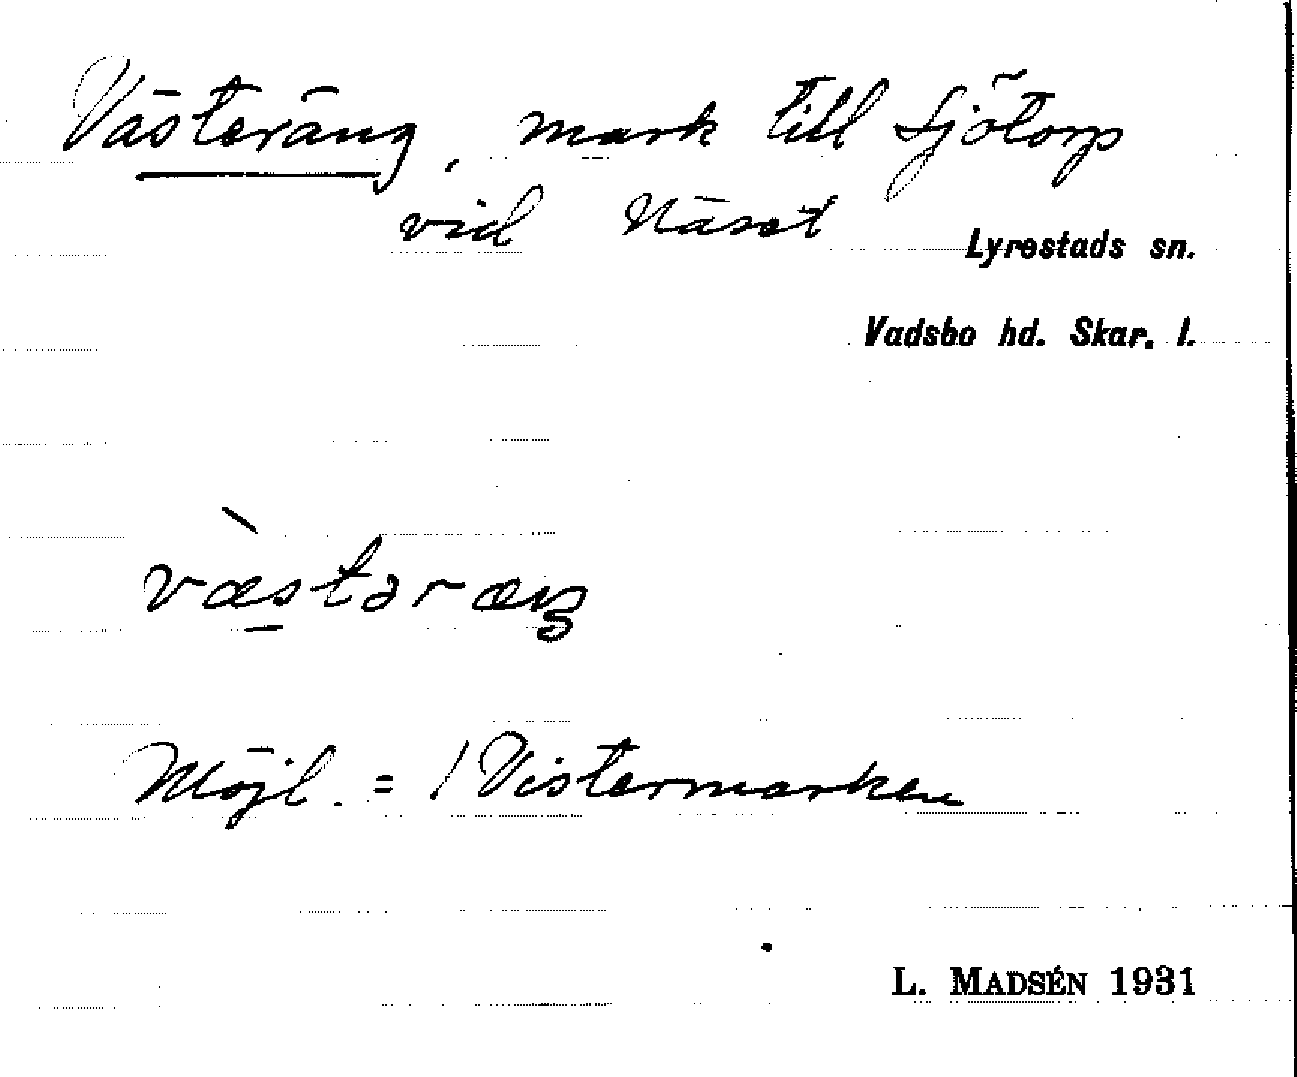 Västeräng, mark till Sjötorp
vid Näset
Lyrestads sn.
Vadsbo hd. Skar. l.
væstəræŋ
Möjl. = / Vistermarken
L. MADSÉN 1931